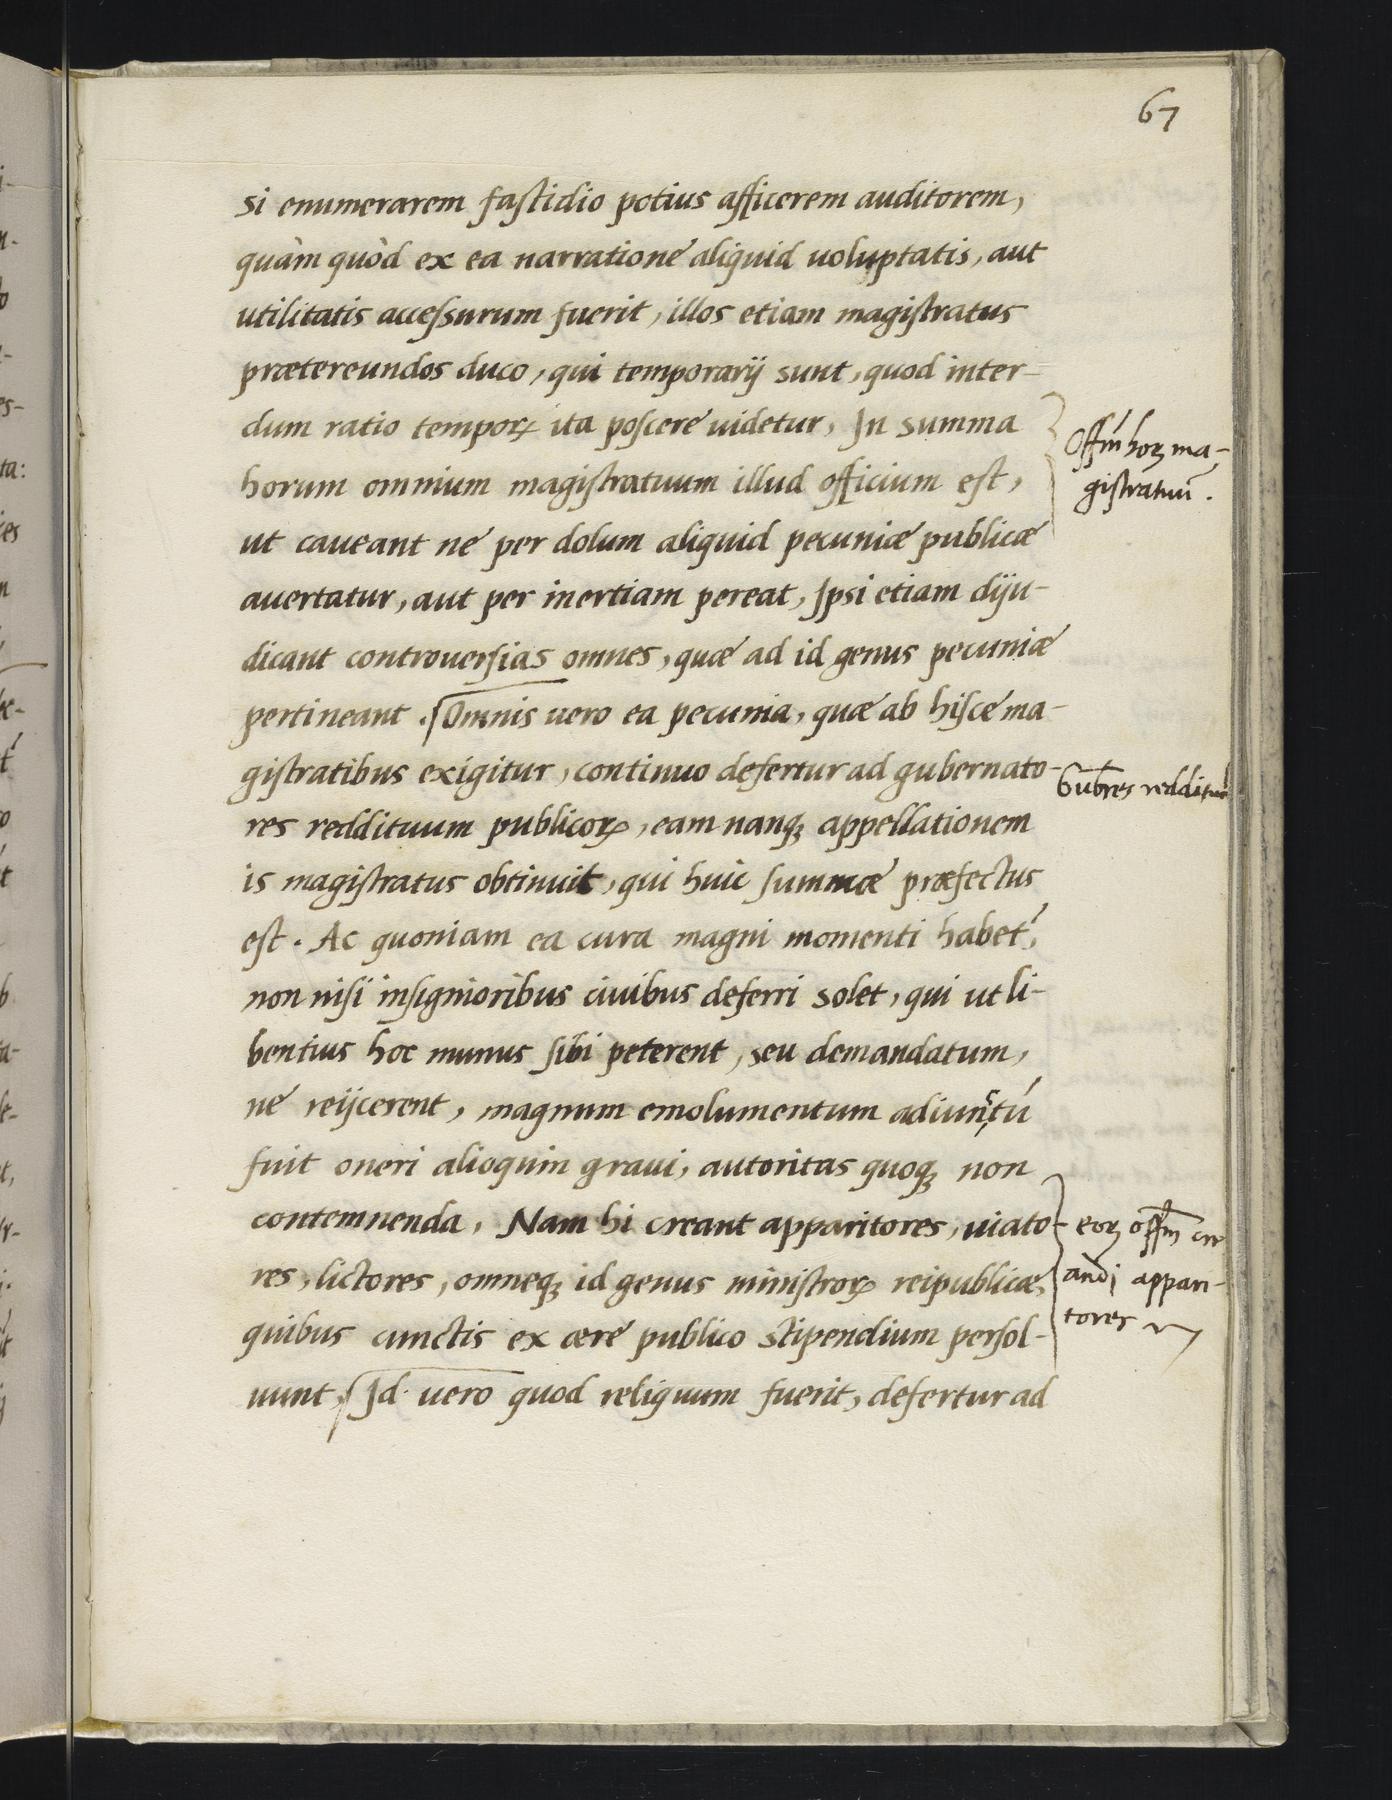 67
si enumerarem fastidio potius afficerem auditorem,
quàm quòd ex ea narratione aliquid uoluptatis, aut
utilitatis accessurum fuerit, illos etiam magistratus
prætereundos duco, qui temporarij sunt, quod inter-
dum ratio temporꝝ ita poscere uidetur, In summa
horum omnium magistratuum illud officium est,
ut caueant ne per dolum aliquid pecuniæ publicæ
auertatur, aut per inertiam pereat, Ipsi etiam diju-
dicant controuersias omnes, quæ ad id genus pecuniæ
pertineant. Omnis uero ea pecunia, quæ ab hisce ma-
gistratibus exigitur, continuo defertur ad gubernato-
res reddituum publicorꝝ, eam nanqꝫ appellationem
is magistratus obtinuit, qui huic summæ præfectus
est. Ac quoniam ea cura magni momenti habet́,
non nisi insignioribus ciuibus deferri solet, qui ut li-
bentius hoc munus sibi peterent, seu demandatum,
ne reijcerent, magnum emolumentum adiunctú
fuit oneri alioquin graui, autoritas quoqꝫ non
contemnenda, Nam hi creant apparitores, uiato-
res, lictores, omneqꝫ id genus ministrorꝝ reipublicæ,
quibus cunctis ex ære publico stipendium persol-
uunt, Id uero quod reliquum fuerit, defertur ad
Offm̄ hoꝝ ma-
gistratuū.
Gub̄res reddituū
eoꝝ offm̄ cre
andi appari-
tores